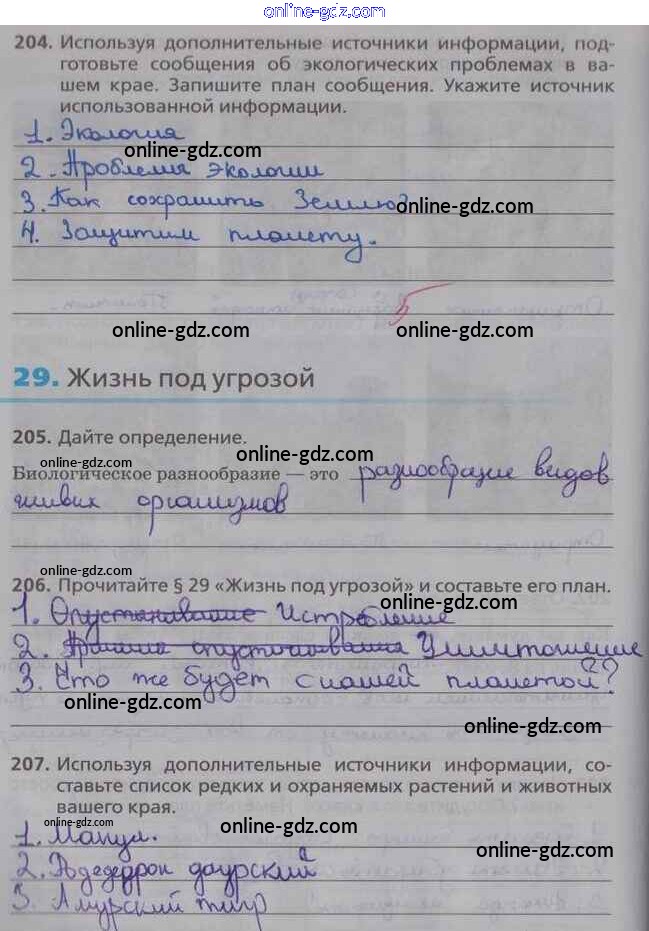 online-gdz.com
204. Используя дополнительные источники информации, под-
готовьте сообщения об экологических проблемах в ва-
шем крае. Запишите план сообщения. Укажите источник
использованной информации.
1. Экология
online-gdz.com
2. Проблемы экологии
3. Как сохранить Землю?
online-gdz.com
4. Защитим планету.
5
online-gdz.com online-gdz.com
29. Жизнь под угрозой
205. Дайте определение.
online-gdz.com
online-gdz.com
Биологическое разнообразие — это разнообразие видов
живых организмов
online-gdz.com
206. Прочитайте § 29 «Жизнь под угрозой» и составьте его план.
1. Опустанивание Истребление
online-gdz.com
2. опустошивания Уничтожение
3. Что же будет с нашей планетой?
online-gdz.com
online-gdz.com
207. Используя дополнительные источники информации, со-
ставьте список редких и охраняемых растений и животных
вашего края.
1. Манул.
online-gdz.com
2. даурский
online-gdz.com
3. Амурский тигр